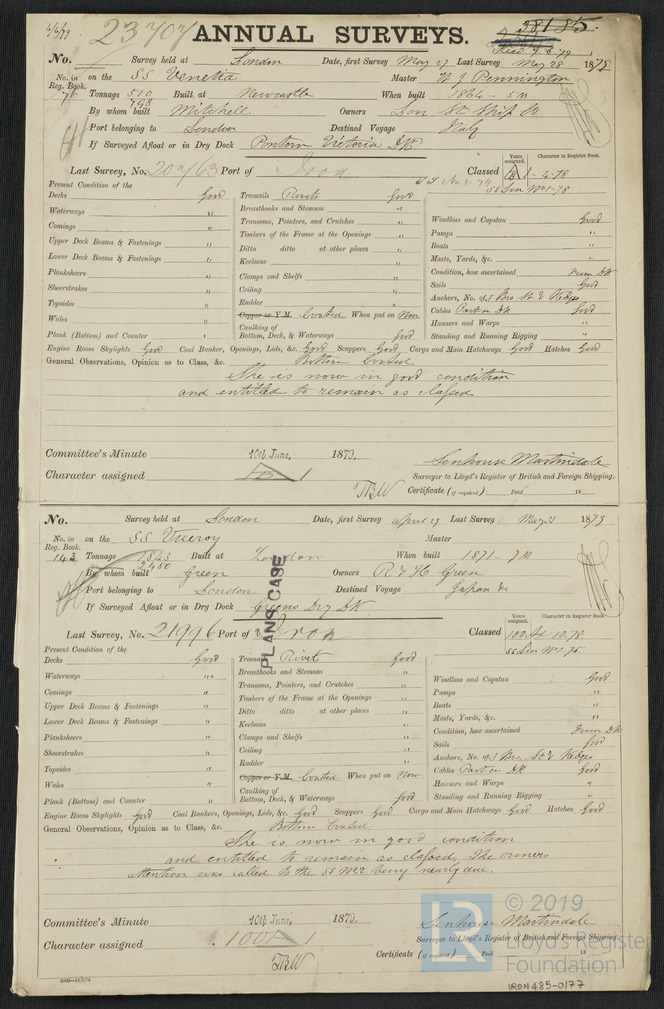 4/6/79 23707 ANNUAL SURVEYS. 58185.
Recd 9.6.79
No. Survey held at London Date, first Survey May 27 Last Survey May 28 1879
No. in Reg. Book. on the SS Venetia Master W J Pennington
76 Tonnage 510 798 Built at Newcastle When built 1864 - 5m
By whom built Mitchell Owners Lon St Ship Co
Port belonging to London Destined Voyage Italy
If Surveyed Afloat or in Dry Dock Victoria DK
Last Survey, No. 20m/63 Port of Iron Classed
Years assigned. Character in Register Book.
SS Lon No 1-78
Present Condition of the
Decks Good Treenails Rivets Good
Waterways " Breasthooks and Stemson " Windlass and Capstan Good
Comings " Transoms, Pointers, and Crutches " Pumps "
Upper Deck Beams & Fastenings " Timbers of the Frame at the Openings " Boats "
Lower Deck Beams & Fastenings " Ditto ditto at other places " Masts, Yards, &c. "
Planksheers " Keelsons " Condition, how ascertained From DK
Sheerstrakes " Clamps and Shelfs " Sails Good
Topsides " Ceiling " Anchors, No. of 3 Brs St & Kedges
Wales " Rudder " Cables Part on DK Good
Copper or Y.M. Coated When put on Now Hawsers and Warps "
Plank (Bottom) and Counter " Caulking of Bottom, Deck, & Waterways Good Standing and Running Rigging "
Engine Room Skylights Good Coal Bunker, Openings, Lids, &c. Good Scuppers Good Cargo and Main Hatchways Good Hatches Good
General Observations, Opinion as to Class, &c. Bottom Coated
She is now in good condition
and entitled to remain as classed
Committee's Minute 10th June, 1879. Senhouse Martindale
Character assigned Surveyor to Lloyd's Register of British and Foreign Shipping.
TBW Certificate (if required) Paid 18
No. Survey held at London Date, first Survey april 29 Last Survey May 31 1879
No. in Reg. Book. on the SS Viceroy Master
143 Tonnage 1843 2480 Built at London When built 1871 - 7m
By whom built Green Owners R & H Green
Port belonging to London Destined Voyage Japan &c
If Surveyed Afloat or in Dry Dock Greens Dry DK
PLANS CASE
Last Survey, No. 21996 Port of Iron Classed 100 A1 10,78
Years assigned. Character in Register Book.
SS Lon No 1-75
Present Condition of the
Decks Good Treenails Rivet Good
Waterways " Breasthooks and Stemson " Windlass and Capstan Good
Comings " Transoms, Pointers, and Crutches " Pumps "
Upper Deck Beams & Fastenings " Timbers of the Frame at the Openings " Boats "
Lower Deck Beams & Fastenings " Ditto ditto at other places " Masts, Yards, &c. "
Planksheers " Keelsons " Condition, how ascertained From DK
Sheerstrakes " Clamps and Shelfs " Sails Good
Topsides " Ceiling " Anchors, No. of 3 Brs St & Kedges
Wales " Rudder " Cables Part on DK Good
Copper or Y.M. Coated When put on Now Hawsers and Warps "
Plank (Bottom) and Counter " Caulking of Bottom, Deck, & Waterways Good Standing and Running Rigging "
Engine Room Skylights Good Coal Bunkers, Openings, Lids, &c. Good Scuppers Good Cargo and Main Hatchways Good Hatches Good
General Observations, Opinion as to Class, &c. Bottom Coated
She is now in good condition
and entitled to remain as classed, The owners
attention was called to the SS No 2 being nearly due.
Committee's Minute 10th June, 1879. Senhouse Martindale
Character assigned 100A1 Surveyor to Lloyd's Register of British and Foreign Shipping.
TBW Certificate (if required) Paid 18
© 2019
LR Lloyd's Register
Foundation
IRON485-0177